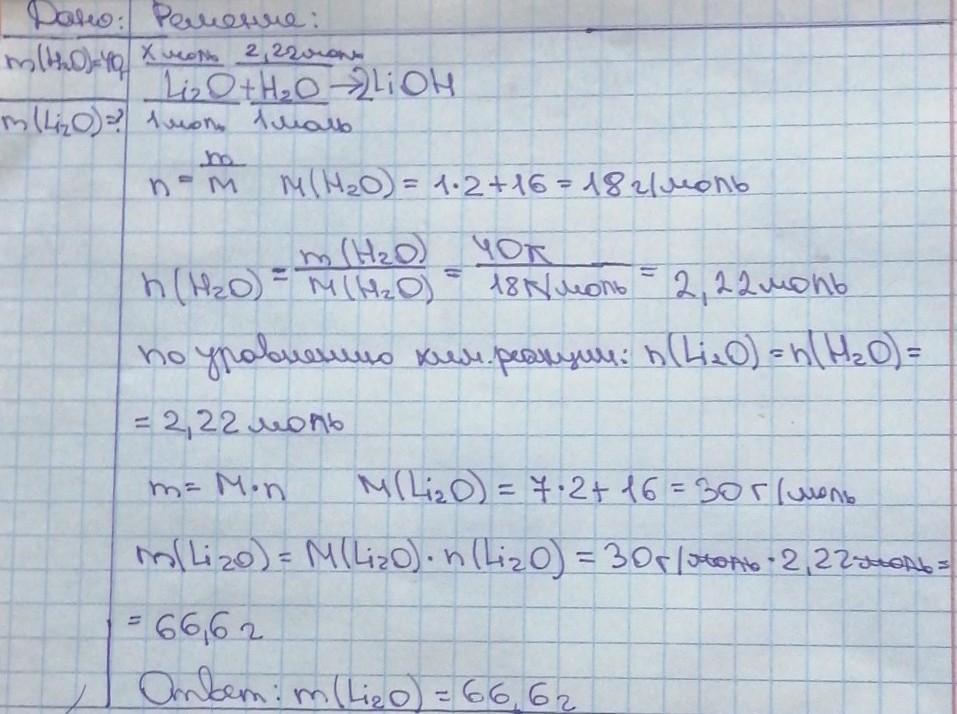 Дано: Решение:
m(H₂O)=40г x моль 2,22моль
Li₂O+H₂O→2LiOH
m(Li₂O)=? 1моль 1моль
n = m/M M(H₂O) = 1·2+16 = 18 г/моль
n(H₂O) = m(H₂O)/M(H₂O) = 40г/18г/моль = 2,22моль
по уравнению хим.реакции: n(Li₂O) = n(H₂O) =
= 2,22 моль
m = M·n M(Li₂O) = 7·2+16 = 30 г/моль
m(Li₂O) = M(Li₂O)·n(Li₂O) = 30г/моль·2,22моль =
= 66,6 г
Ответ: m(Li₂O) = 66,6г